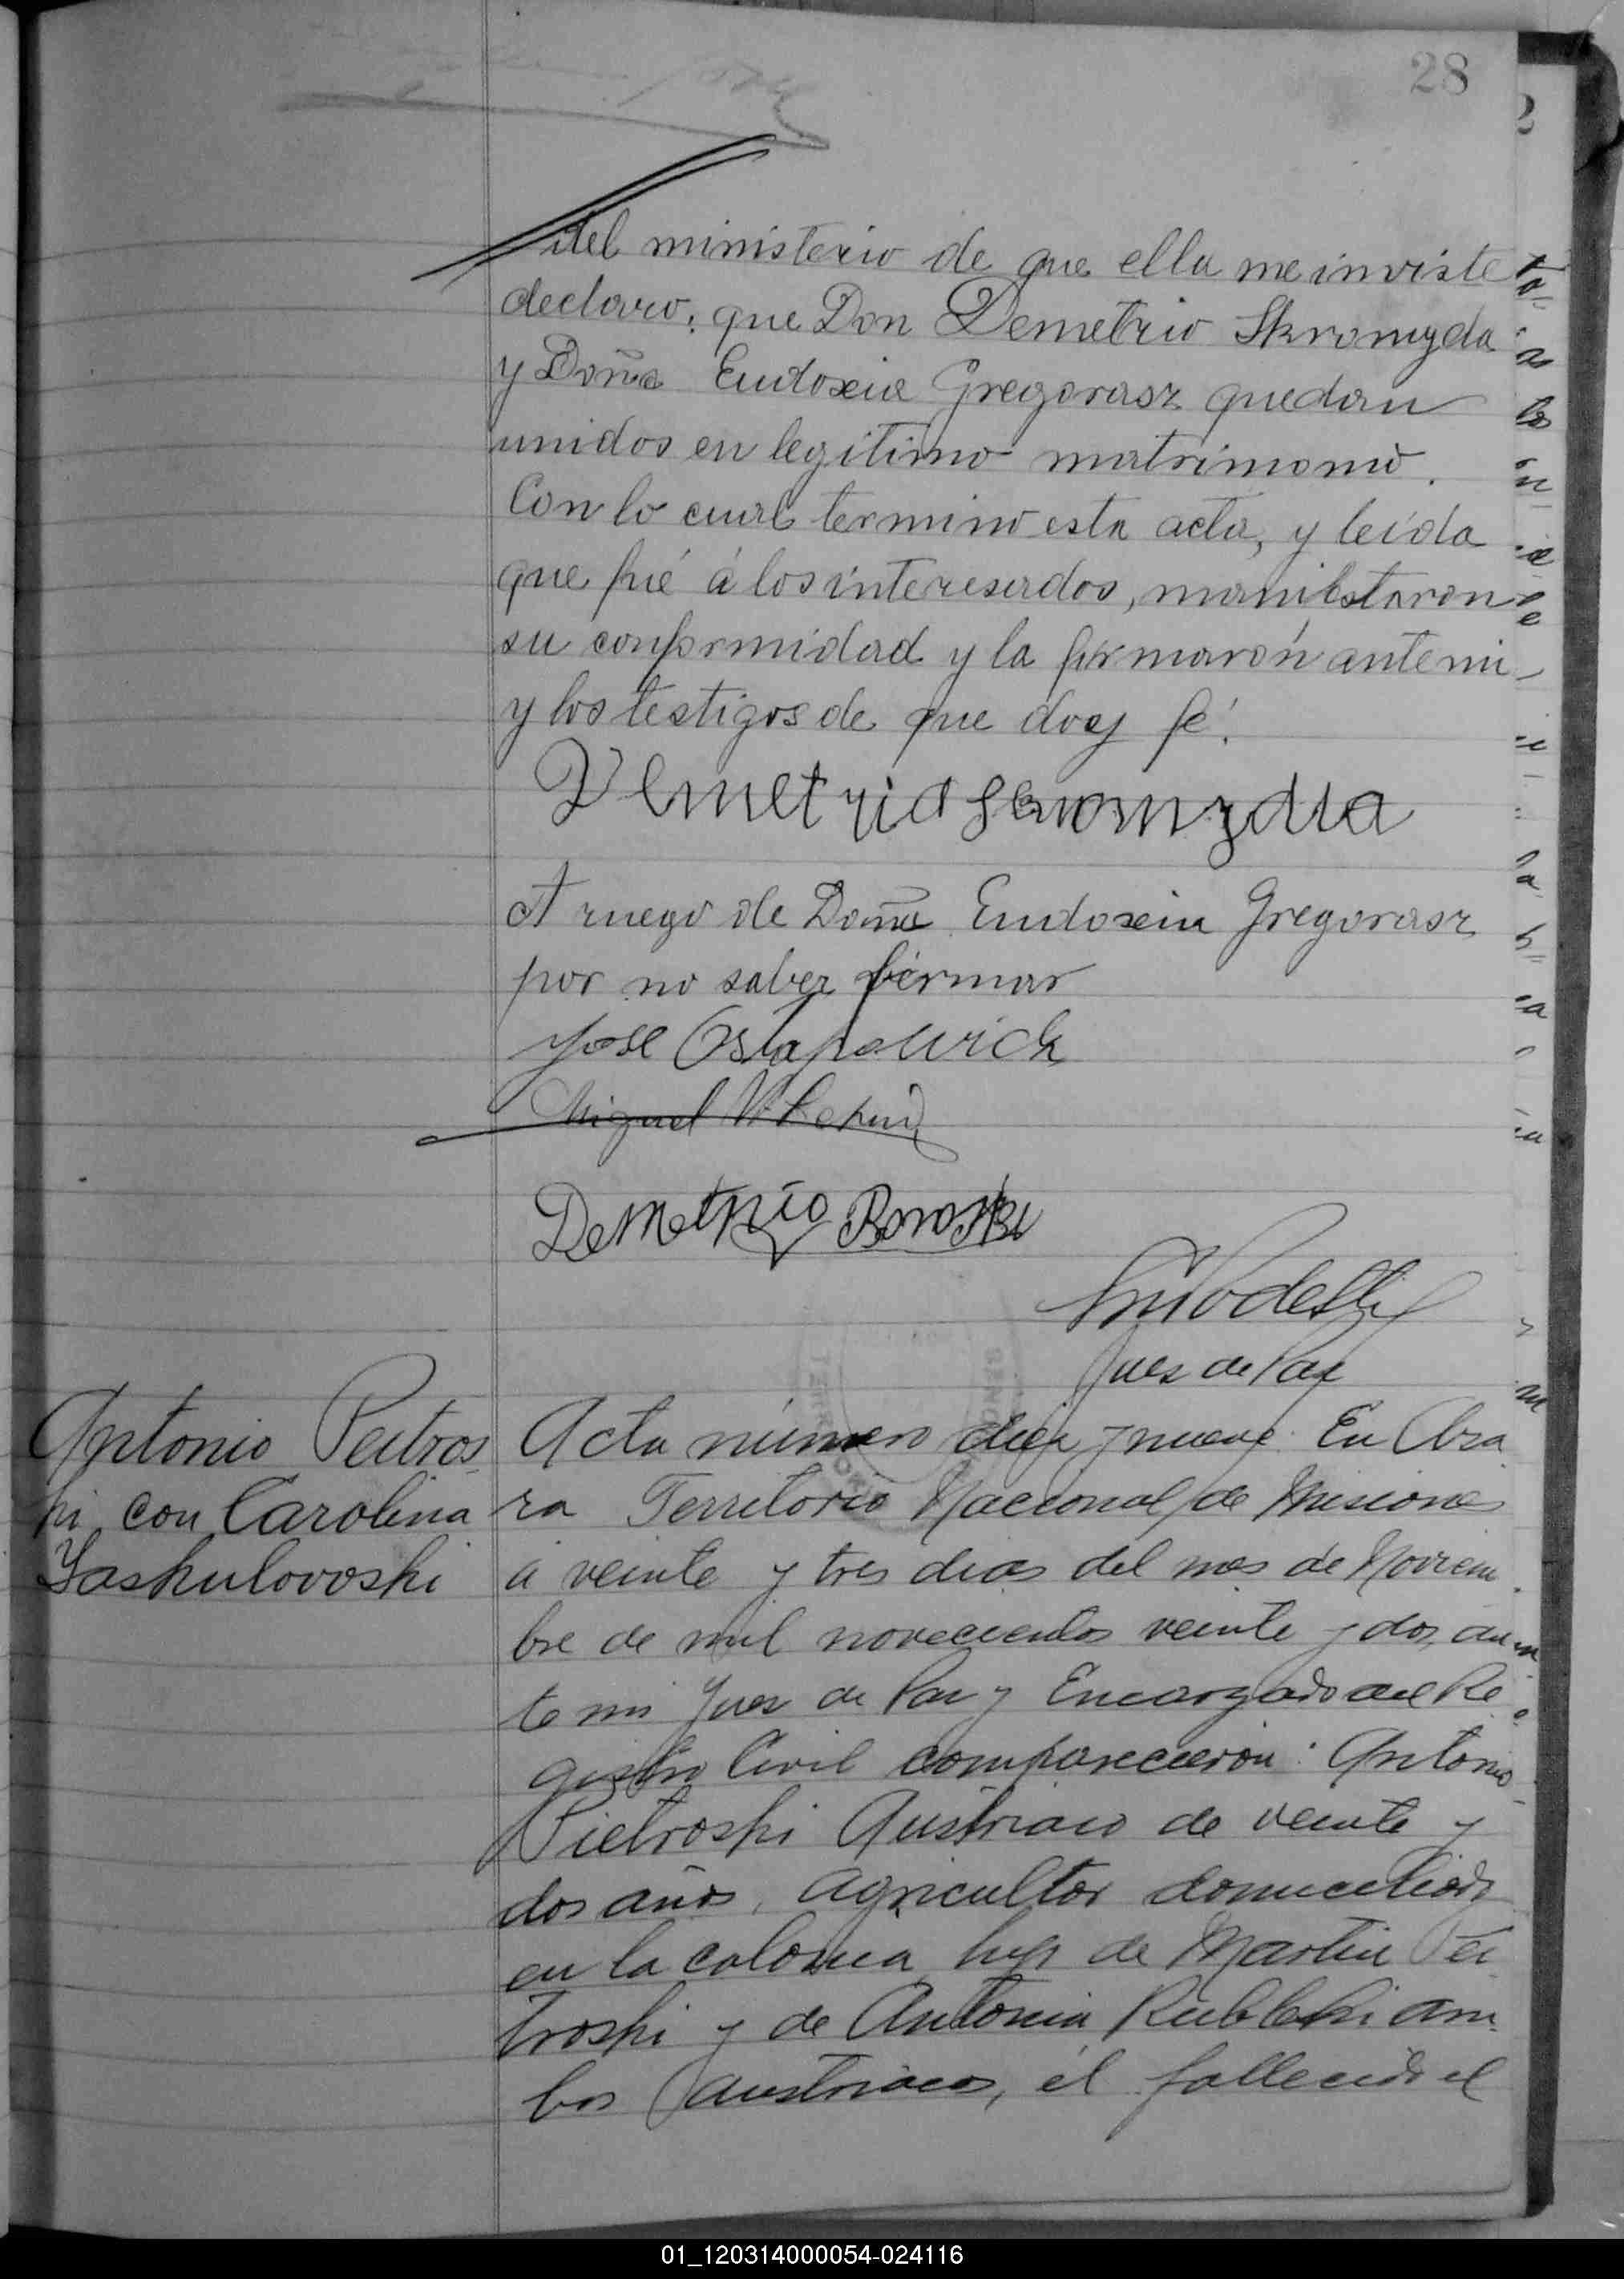 28
del ministerio de que ella me inviste
declaro; que Don Demetrio Skromyda
y Doña Eudoxia Gregorasz quedan
unidos en legítimo matrimonio.
Con lo cual termino esta acta, y leída
que fué á los interesados, manifestaron
su conformidad y la firmarón ante mi
y los testigos de que doy fé.
Demetrio Skromyda
A ruego de Doña Eudoxia Gregorasz
por no saber firmar
Jose Ostapowich
Miguel
Demetrio
Juez de Paz
Antonio Peitros
ki con Carolina
Yaskulovoski
Acta número diez y nueve. En Aza
ra Territorio Nacional de Misiones
a veinte y tres dias del mes de Noviem
bre de mil novecientos veinte y dos, an
te mi Juez de Paz y Encargado del Re
gistro Civil comparecieron: Antonio
Pietroski Austriaco de veinte y
dos años, agricultor domiciliado
en la colonia, hijo de Martin Pei
troski y de Antonia am
bos austriacos, él fallecido el
01_120314000054-024116